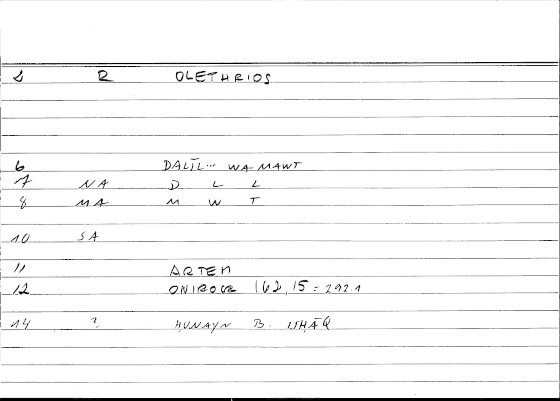 1 R OLETHRIOS
6 DALĪL... WA-MAWT
7 NA D L L
8 MA M W T
10 SA
11 ARTEM
12 ONIROCR 162,15 = 292.1
14 ? ḤUNAYN B. ISḤĀQ